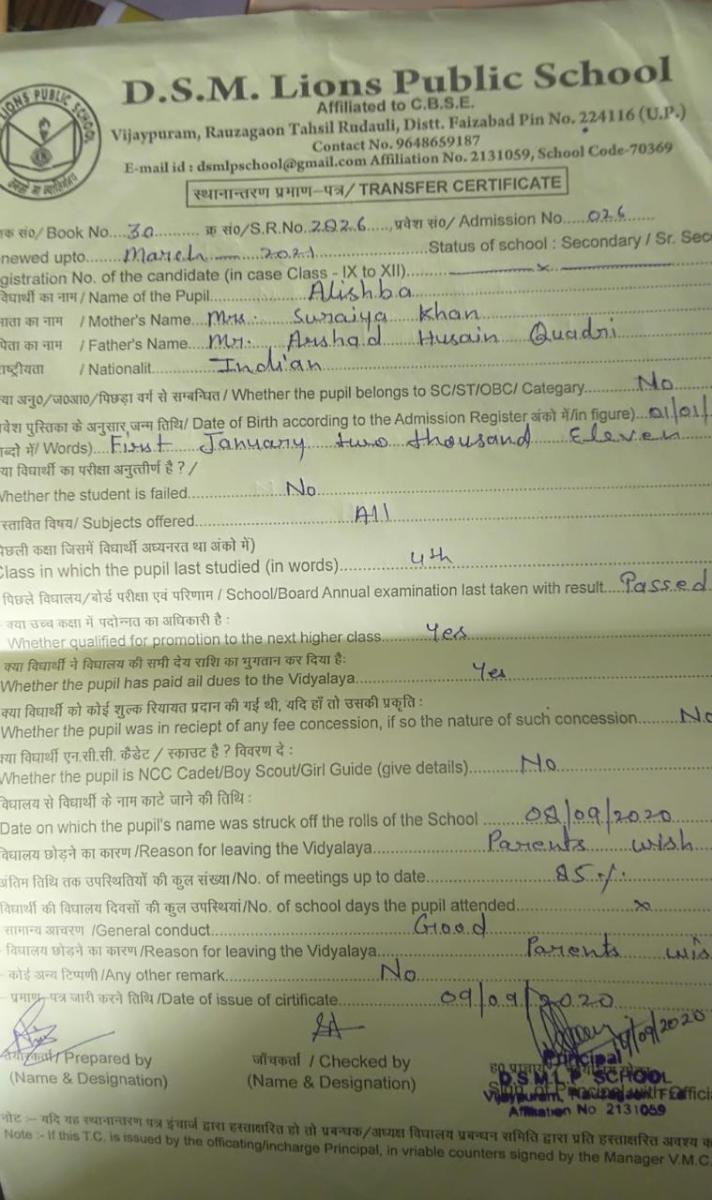 LIONS PUBLIC SCHOOL
D.S.M. Lions Public School
Affiliated to C.B.S.E.
Vijaypuram, Rauzagaon Tahsil Rudauli, Distt. Faizabad Pin No. 224116 (U.P.)
Contact No. 9648659187
E-mail id : dsmlpschool@gmail.com Affiliation No. 2131059, School Code-70369
स्थानान्तरण प्रमाण-पत्र/ TRANSFER CERTIFICATE
सं०/ Book No....30.......... क्र सं०/S.R.No..2826....., प्रवेश सं०/ Admission No....026......
newed upto......March 2021............Status of school : Secondary / Sr. Sec
gistration No. of the candidate (in case Class - IX to XII)............x............
विद्यार्थी का नाम / Name of the Pupil............Alishba............
माता का नाम / Mother's Name...Mrs. Suraiya Khan............
पिता का नाम / Father's Name...Mr. Arshad Husain Quadri......
राष्ट्रीयता / Nationalit............Indian............
या अनु०/ज०आ०/पिछड़ा वर्ग से सम्बन्धित / Whether the pupil belongs to SC/ST/OBC/ Categary.........No.......
वेश पुस्तिका के अनुसार जन्म तिथि/ Date of Birth according to the Admission Register अंको में/in figure)...01/01/
ब्दो में/ Words)...First January two thousand Eleven......
या विद्यार्थी का परीक्षा अनुत्तीर्ण है ? /
Whether the student is failed............No............
स्तावित विषय/ Subjects offered............All............
पिछली कक्षा जिसमें विद्यार्थी अध्यनरत था अंको में)
Class in which the pupil last studied (in words)............4th............
पिछले विद्यालय/बोर्ड परीक्षा एवं परिणाम / School/Board Annual examination last taken with result....Passed..
क्या उच्च कक्षा में पदोन्नत का अधिकारी है :
Whether qualified for promotion to the next higher class.........Yes............
क्या विद्यार्थी ने विद्यालय की सभी देय राशि का भुगतान कर दिया है:
Whether the pupil has paid ail dues to the Vidyalaya............Yes............
क्या विद्यार्थी को कोई शुल्क रियायत प्रदान की गई थी, यदि हाँ तो उसकी प्रकृति :
Whether the pupil was in reciept of any fee concession, if so the nature of such concession.......No
क्या विद्यार्थी एन.सी.सी. कैडेट / स्काउट है ? विवरण दे :
Whether the pupil is NCC Cadet/Boy Scout/Girl Guide (give details).........No............
विद्यालय से विद्यार्थी के नाम काटे जाने की तिथि :
Date on which the pupil's name was struck off the rolls of the School .......08/09/2020.......
विद्यालय छोड़ने का कारण /Reason for leaving the Vidyalaya............Parents wish......
अंतिम तिथि तक उपस्थितियों की कुल संख्या/No. of meetings up to date............85%............
विद्यार्थी की विद्यालय दिवसों की कुल उपस्थियां/No. of school days the pupil attended............x............
सामान्य आचरण /General conduct............Good............
विद्यालय छोड़ने का कारण /Reason for leaving the Vidyalaya............Parents wis
कोई अन्य टिप्पणी /Any other remark............No............
प्रमाण पत्र जारी करने तिथि /Date of issue of cirtificate............09/09/2020............
09/09/2020
तैयारकर्ता/ Prepared by
(Name & Designation)
जाँचकर्ता / Checked by
(Name & Designation)
Principal
D.S.M.L.P. SCHOOL
Vijaypuram,
Affiliation No 2131059
नोट :- यदि यह स्थानान्तरण पत्र इंचार्ज द्वारा हस्ताक्षरित हो तो प्रबन्धक/अध्यक्ष विद्यालय प्रबन्धन समिति द्वारा प्रति हस्ताक्षरित अवश्य क
Note :- If this T.C. is issued by the officating/incharge Principal, in vriable counters signed by the Manager V.M.C.